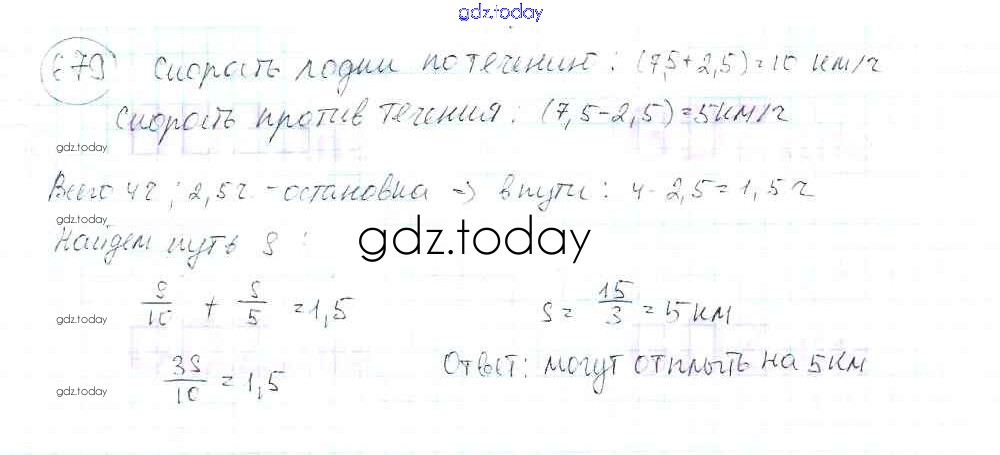 gdz.today
679 Скорость лодки по течению: (7,5+2,5)=10 км/ч
Скорость против течения: (7,5-2,5)=5км/ч
gdz.today
Всего 4ч; 2,5ч. - остановка => в пути: 4-2,5=1,5ч
gdz.today
Найдем путь S:
gdz.today
S/10 + S/5 = 1,5
S = 15/3 = 5 км
gdz.today
3S/10 = 1,5
Ответ: могут отплыть на 5км
gdz.today